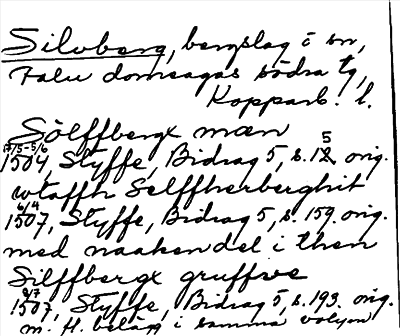 Silvberg, bergslag i sn,
Falu domsagas södra tg,
Kopparb. l.
Sölffbergx mæn
17/5-5/6
1504, Styffe, Bidrag 5, s. 15 orig.
wtaffh Selffherberghit
6/4
1507, Styffe, Bidrag 5, s. 159. orig.
med naakendel i then
Silffbergx gruffve
9/7
1507, Styffe, Bidrag 5, s. 193. orig.
m. fl. belägg i samma volym